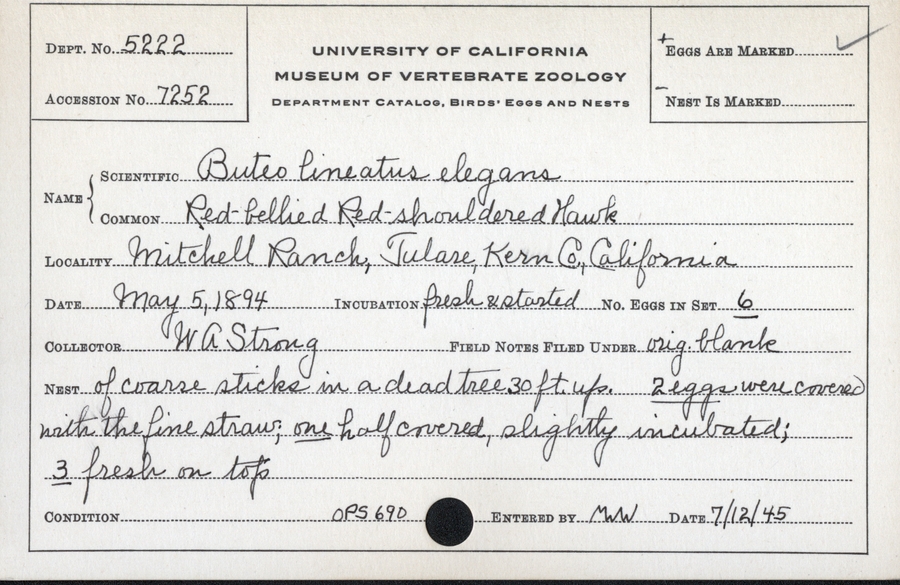 DEPT. No. 5222
ACCESSION No. 7252
UNIVERSITY OF CALIFORNIA
MUSEUM OF VERTEBRATE ZOOLOGY
DEPARTMENT CATALOG, BIRDS' EGGS AND NESTS
+ EGGS ARE MARKED ✓
- NEST IS MARKED
NAME { SCIENTIFIC Buteo lineatus elegans
COMMON Red-bellied Red-shouldered Hawk
LOCALITY Mitchell Ranch, Tulare, Kern Co, California
DATE May 5, 1894 INCUBATION fresh & started No. EGGS IN SET 6
COLLECTOR W A Strong FIELD NOTES FILED UNDER orig. blank
NEST of coarse sticks in a dead tree 30 ft. up. 2 eggs were covered
with the fine straw; one half covered, slightly incubated;
3 fresh on top
CONDITION OPS 690 ENTERED BY MWW DATE 7/12/45